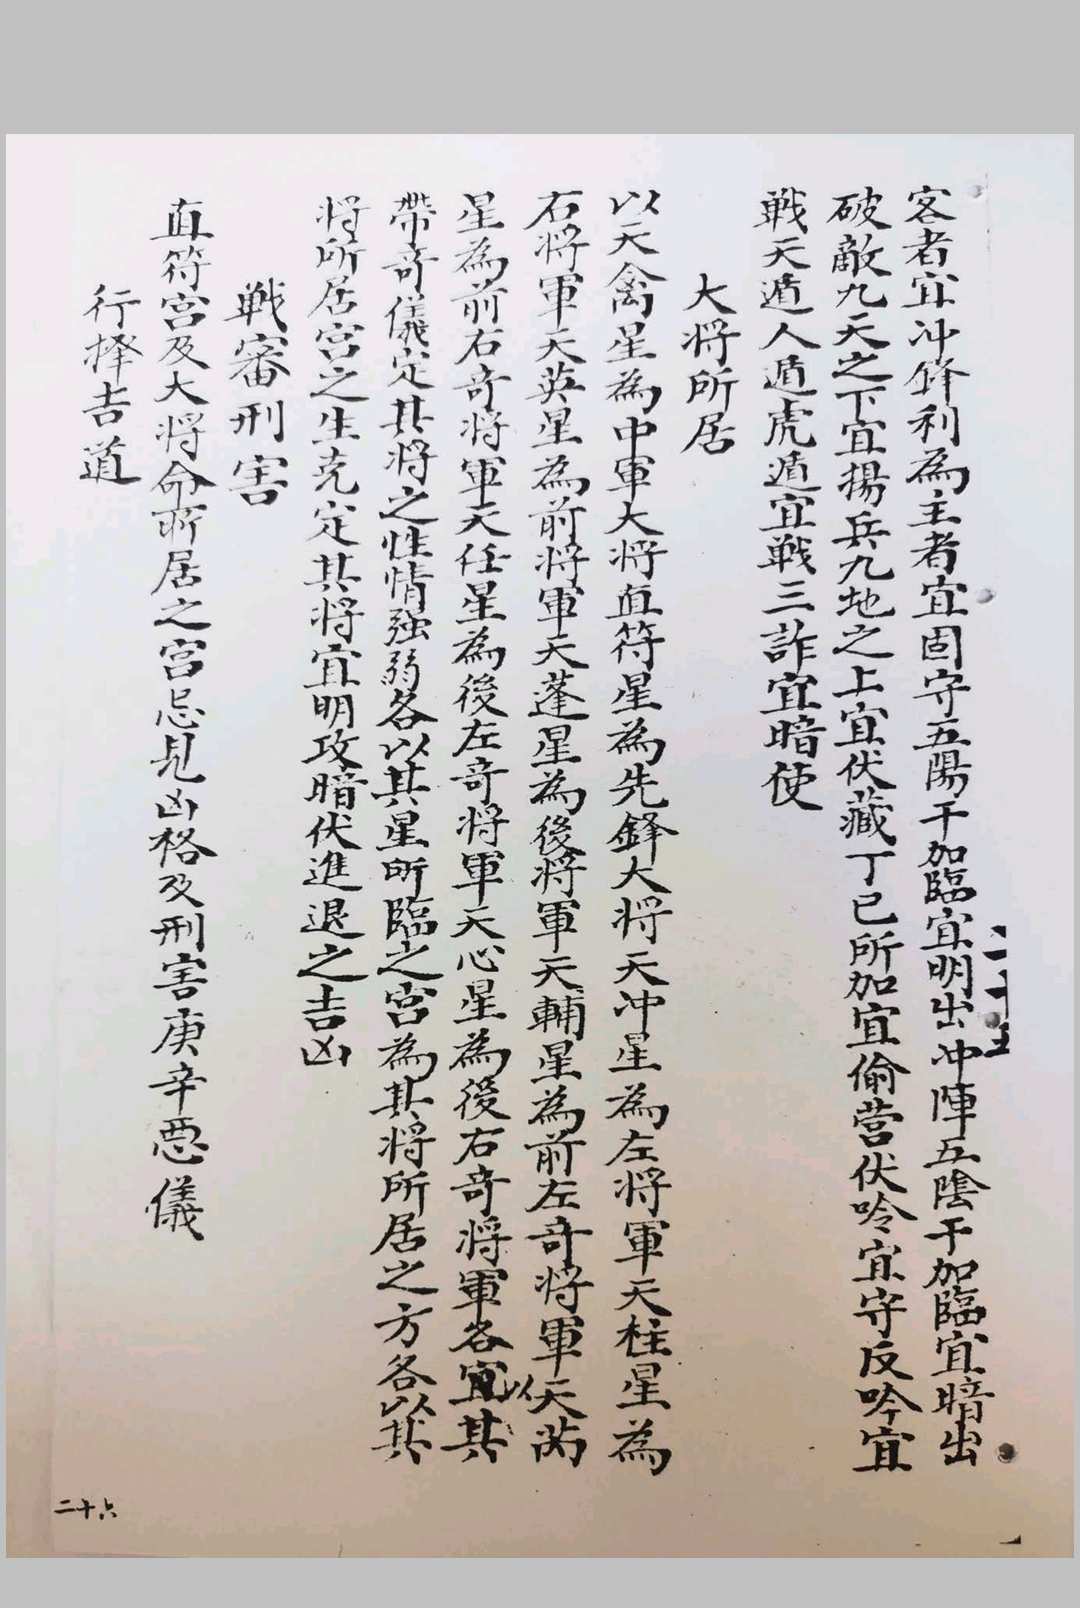 客者宜冲鋒利為主者宜固守五陽干加臨宜明出冲陣五陰干加臨宜暗出
破敵九天之下宜揚兵九地之上宜伏藏丁己所加宜偷营伏吟宜守反吟宜
戦天遁人遁虎遁宜戦三詐宜暗使
大将所居
以天禽星為中軍大将直符星為先鋒大将天冲星為左将軍天柱星為
右将軍天英星為前将軍天蓬星為後将軍天輔星為前左奇将軍天芮
星為前右奇将軍天任星為後左奇将軍天心星為後右奇将軍各以其
帶奇儀定其将之性情强弱各以其星所臨之宫為其将所居之方各以其
将所居宫之生克定其将宜明攻暗伏進退之吉凶
戦審刑害
直符宫及大将命所居之宫忌見凶格及刑害庚辛悪儀
行择吉道
二十五
二十六